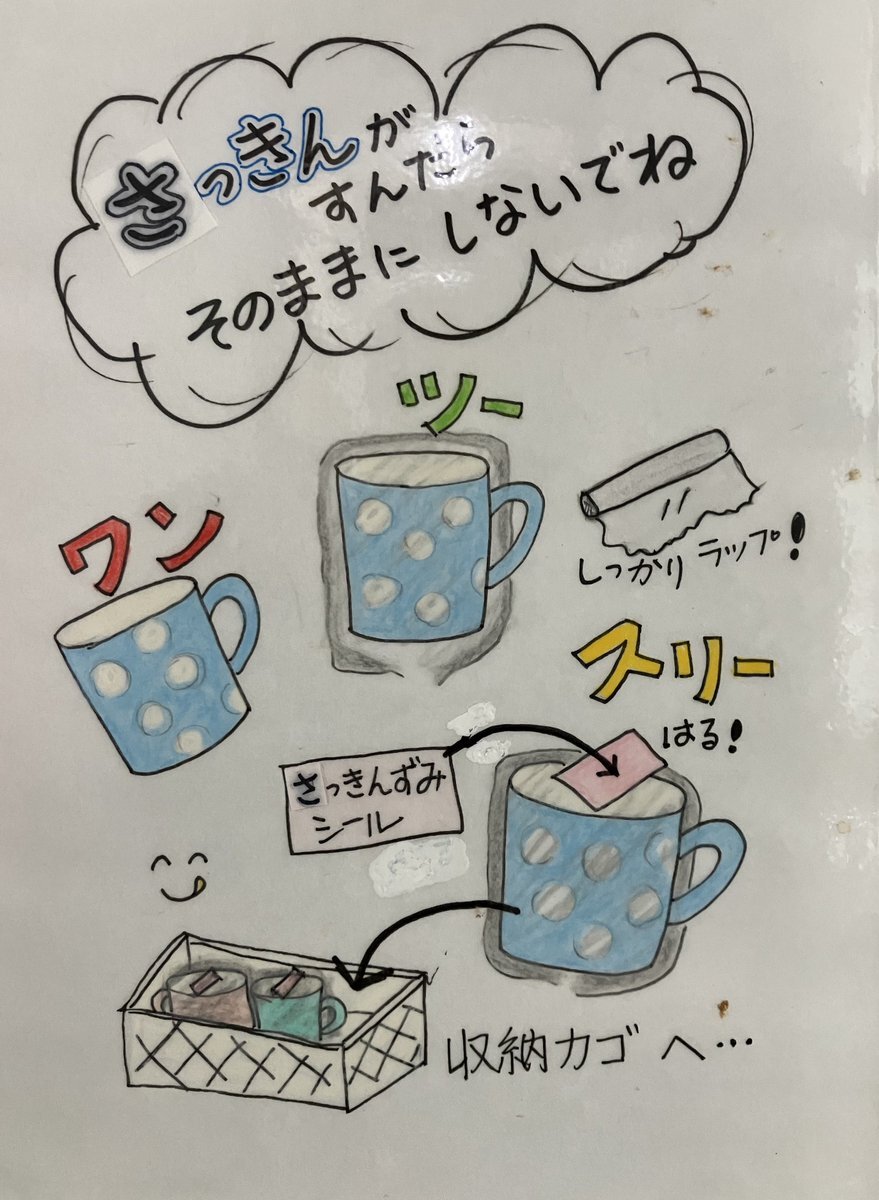 さっきんが
すんだら
そのままにしないでね
ワン
ツー
しっかりラップ!
スリー
はる!
さっきんずみ
シール
収納カゴへ…